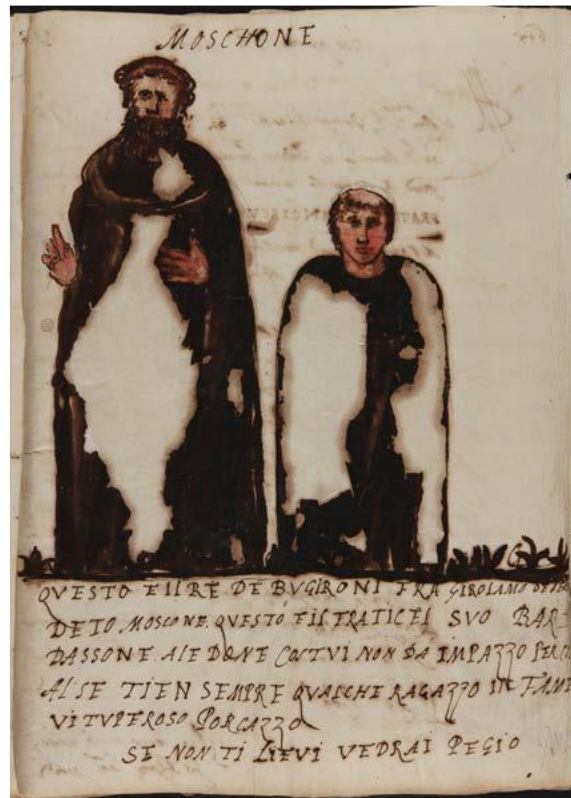 MOSCHONE
QVESTO E IL RE DE BVGIRONI FRA GIROLAMO
DETO MOSCONE. QVESTO E IL FRATICEL SVO BAR-
DASSONE. A LE DONE COSTVI NON DA IMPAZZO
AL SE TIEN SEMPRE QVALCHE RAGAZZO IN
VITVPEROSO PORCAZZO
SE NON TI LIEVI VEDRAI PEGIO